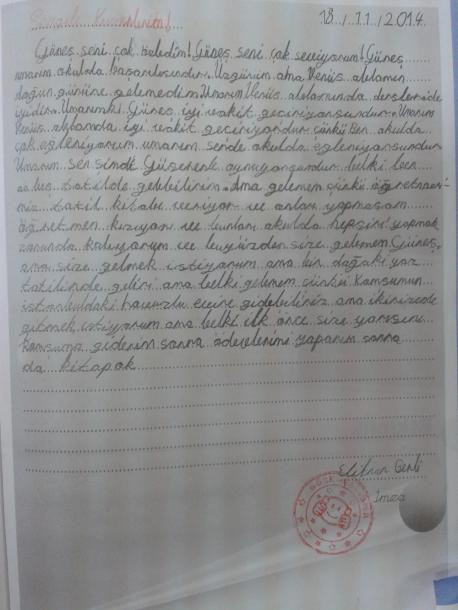 18/11/2014
Sevgili Kuzenlerim!
Güneş seni çok özledim! Güneş seni çok seviyorum! Güneş
umarım okulda başarılısındır. Üzgünüm ama Venüs ablamın
doğun gününe gelemedim. Umarım Venüs ablamında dersleride
iyidir. Umarımki Güneş iyi vakit geçiriyorsundur. Umarım
Venüs ablamda iyi vakit geçiriyordur çünkü Ben okulda
çok eğleniyorum umarım sende okulda eğleniyorsundur
Umarım sen şimdi oynuyorsundur belki ben
tatilde gelebilirim. Ama gelemem çünkü öğretmeni-
miz tatil kitabı veriyor ve onları yapmasam
öğretmen kızıyor ve bunları okulda hepsini yapmak
zorunda kalıyorum ve bu yüzden size gelemem Güneş.
ama size gelmek istiyorum ama bir dahaki yaz
tatilinde gelirim ama belki gelemem çünkü
istanbuldaki havuzlu evine gidebiliriz ama ikinizede
gitmek istiyorum ama belki ilk önce size yarısını
giderim sonra ödevlerimi yaparım sonra
da kitapok
Elifnur
İmza